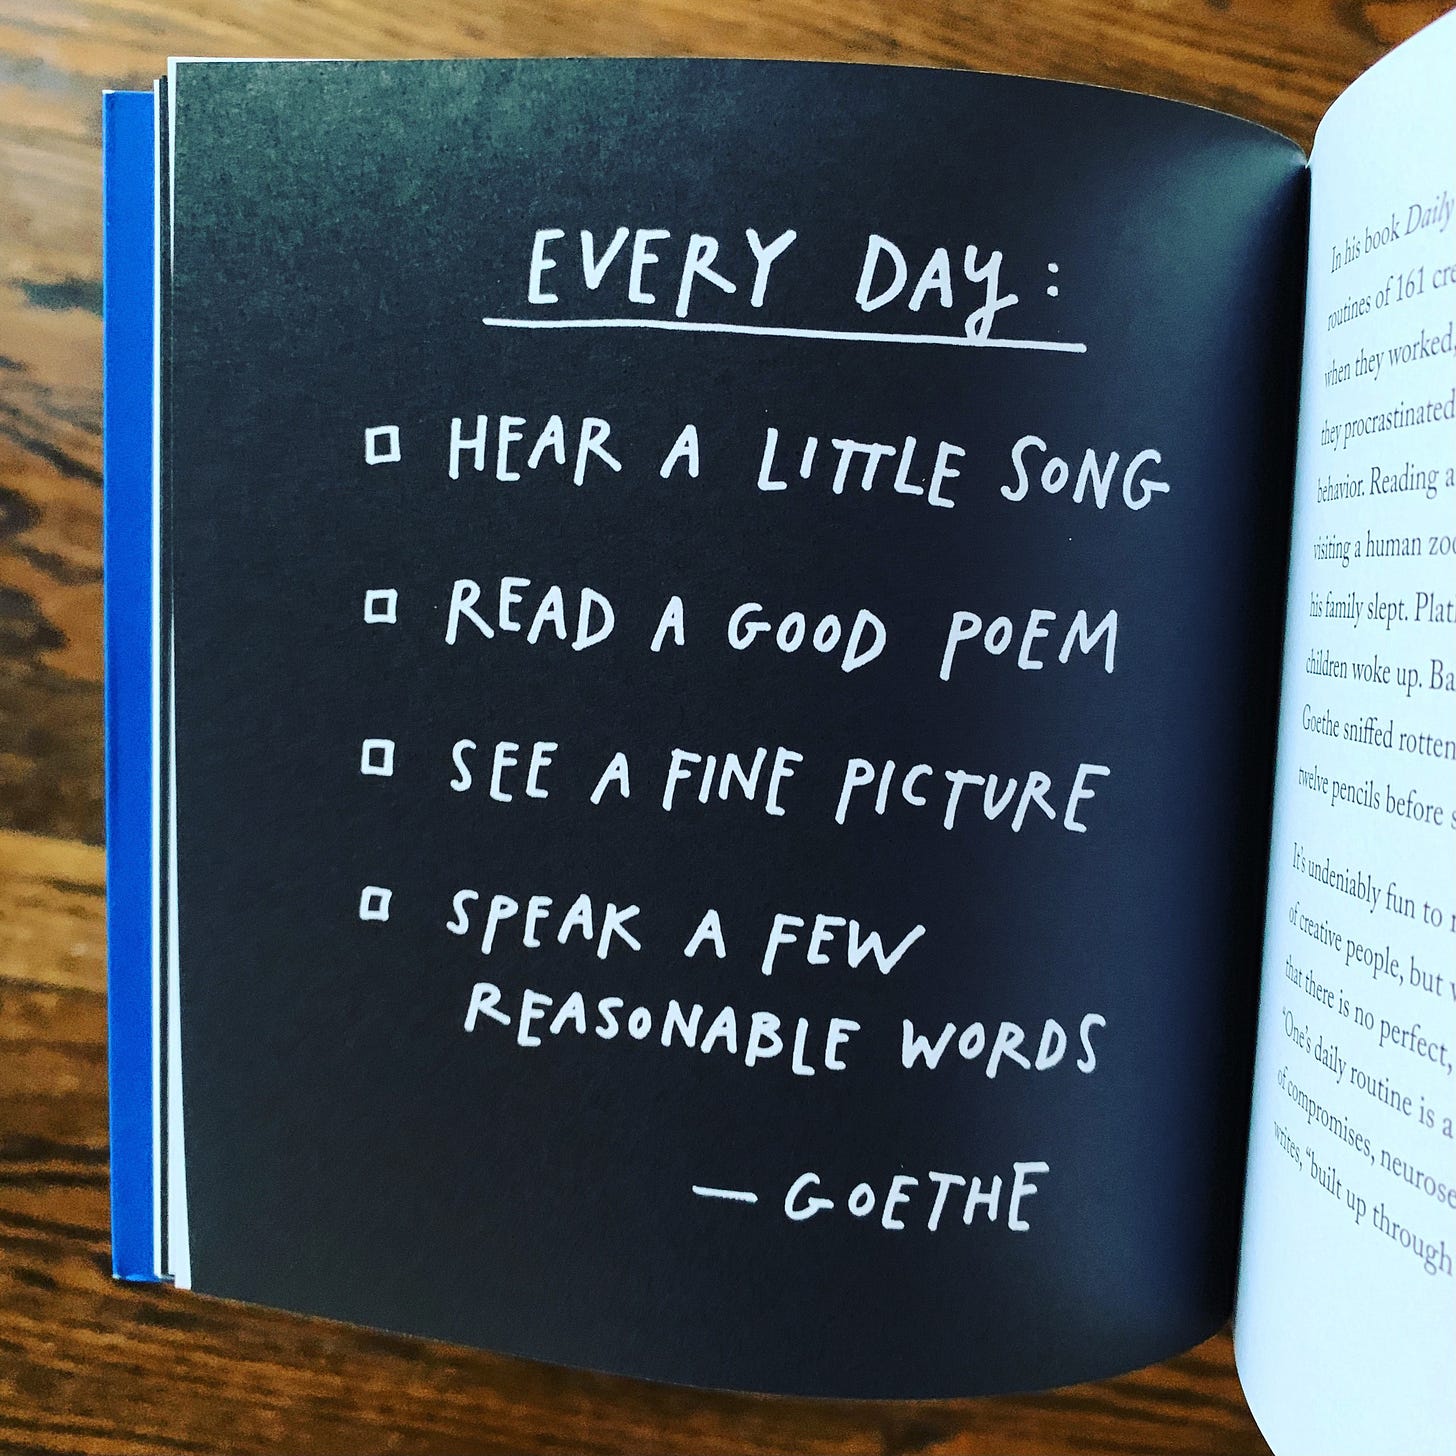 EVERY DAY:
HEAR A LITTLE SONG
READ A GOOD POEM
SEE A FINE PICTURE
SPEAK A FEW
REASONABLE WORDS
— GOETHE
In his book Daily
routines of 161
when they worked,
they procrastinated
behavior. Reading a
visiting a human
his family slept.
children woke up.
Goethe sniffed rotten
twelve pencils before
It's undeniably fun to
of creative people, but
that there is no perfect,
"One's daily routine is a
of compromises,
writes, "built up through